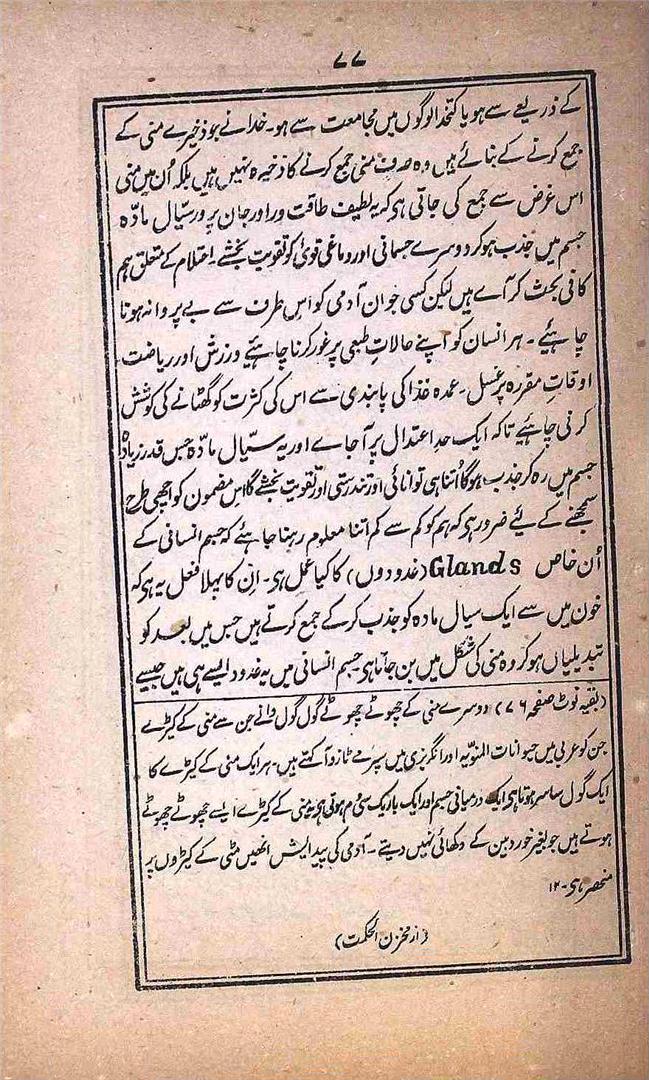 ۷۷
کے ذریعے سے ہو یا کتخدا لوگوں میں مجامعت سے ہو۔ خدا نے جو ذخیرے منی کے
جمع کرنے کے بنائے ہیں وہ صرف منی جمع کرنے کا ذخیرہ نہیں ہیں بلکہ اُن میں منی
اس غرض سے جمع کی جاتی ہی کہ یہ لطیف طاقت ور اور جان پرور سیّال مادّہ
جسم میں جذب ہو کر دوسرے جسمانی اور دماغی قویٰ کو تقویت بخشے۔ احتلام کے متعلق ہم
کافی بحث کر آے ہیں لیکن کسی جوان آدمی کو اس طرف سے بے پروا نہ ہونا
چاہیئے۔ ہر انسان کو اپنے حالاتِ طبعی پر غور کرنا چاہیئے ورزش اور ریاضت
اوقاتِ مقررہ پر غسل۔ عمدہ غذا کی پابندی سے اس کی کثرت کو گھٹانے کی کوشش
کرنی چاہیئے تاکہ ایک حدِ اعتدال پر آجاے اور یہ سیّال مادّہ جس قدر زیادہ
جسم میں رہ کر جذب ہوگا اُتنا ہی توانائی اور تندرستی اور تقویت بخشے گا اس مضمون کو اچھی طرح
سمجھنے کے لیئے ضرور ہی کہ ہم کو کم سے کم اتنا معلوم رہنا چاہئے کہ جسم انسانی کے
اُن خاص Glands (غدودوں) کا کیا عمل ہی۔ اِن کا پہلا فعل یہ ہی کہ
خون میں سے ایک سیال مادہ کو جذب کر کے جمع کرتے ہیں جس میں بعد کو
تبدیلیاں ہو کر وہ منی کی شکل میں بن جاتا ہی جسم انسانی میں یہ غدود ایسے ہی ہیں جیسے
(بقیہ نوٹ صفحہ ۷۶) دوسرے منی کے چھوٹے چھوٹے گول گول دانے جن سے منی کے کیڑے
جن کو عربی میں حیوانات المنویہ اور انگریزی میں سپرمے ٹازوآ کہتے ہیں۔ ہر ایک منی کے کیڑے کا
ایک گول سا سر ہوتا ہی ایک درمیانی جسم اور ایک باریک سی دُم ہوتی ہی یہ منی کے کیڑے ایسے چھوٹے چھوٹے
ہوتے ہیں جو بغیر خوردبین کے دکھائی نہیں دیتے۔ آدمی کی پیدایش انھیں منی کے کیڑوں پر
منحصر ہی۔ ۱۲
(از مخزن الحکمت)